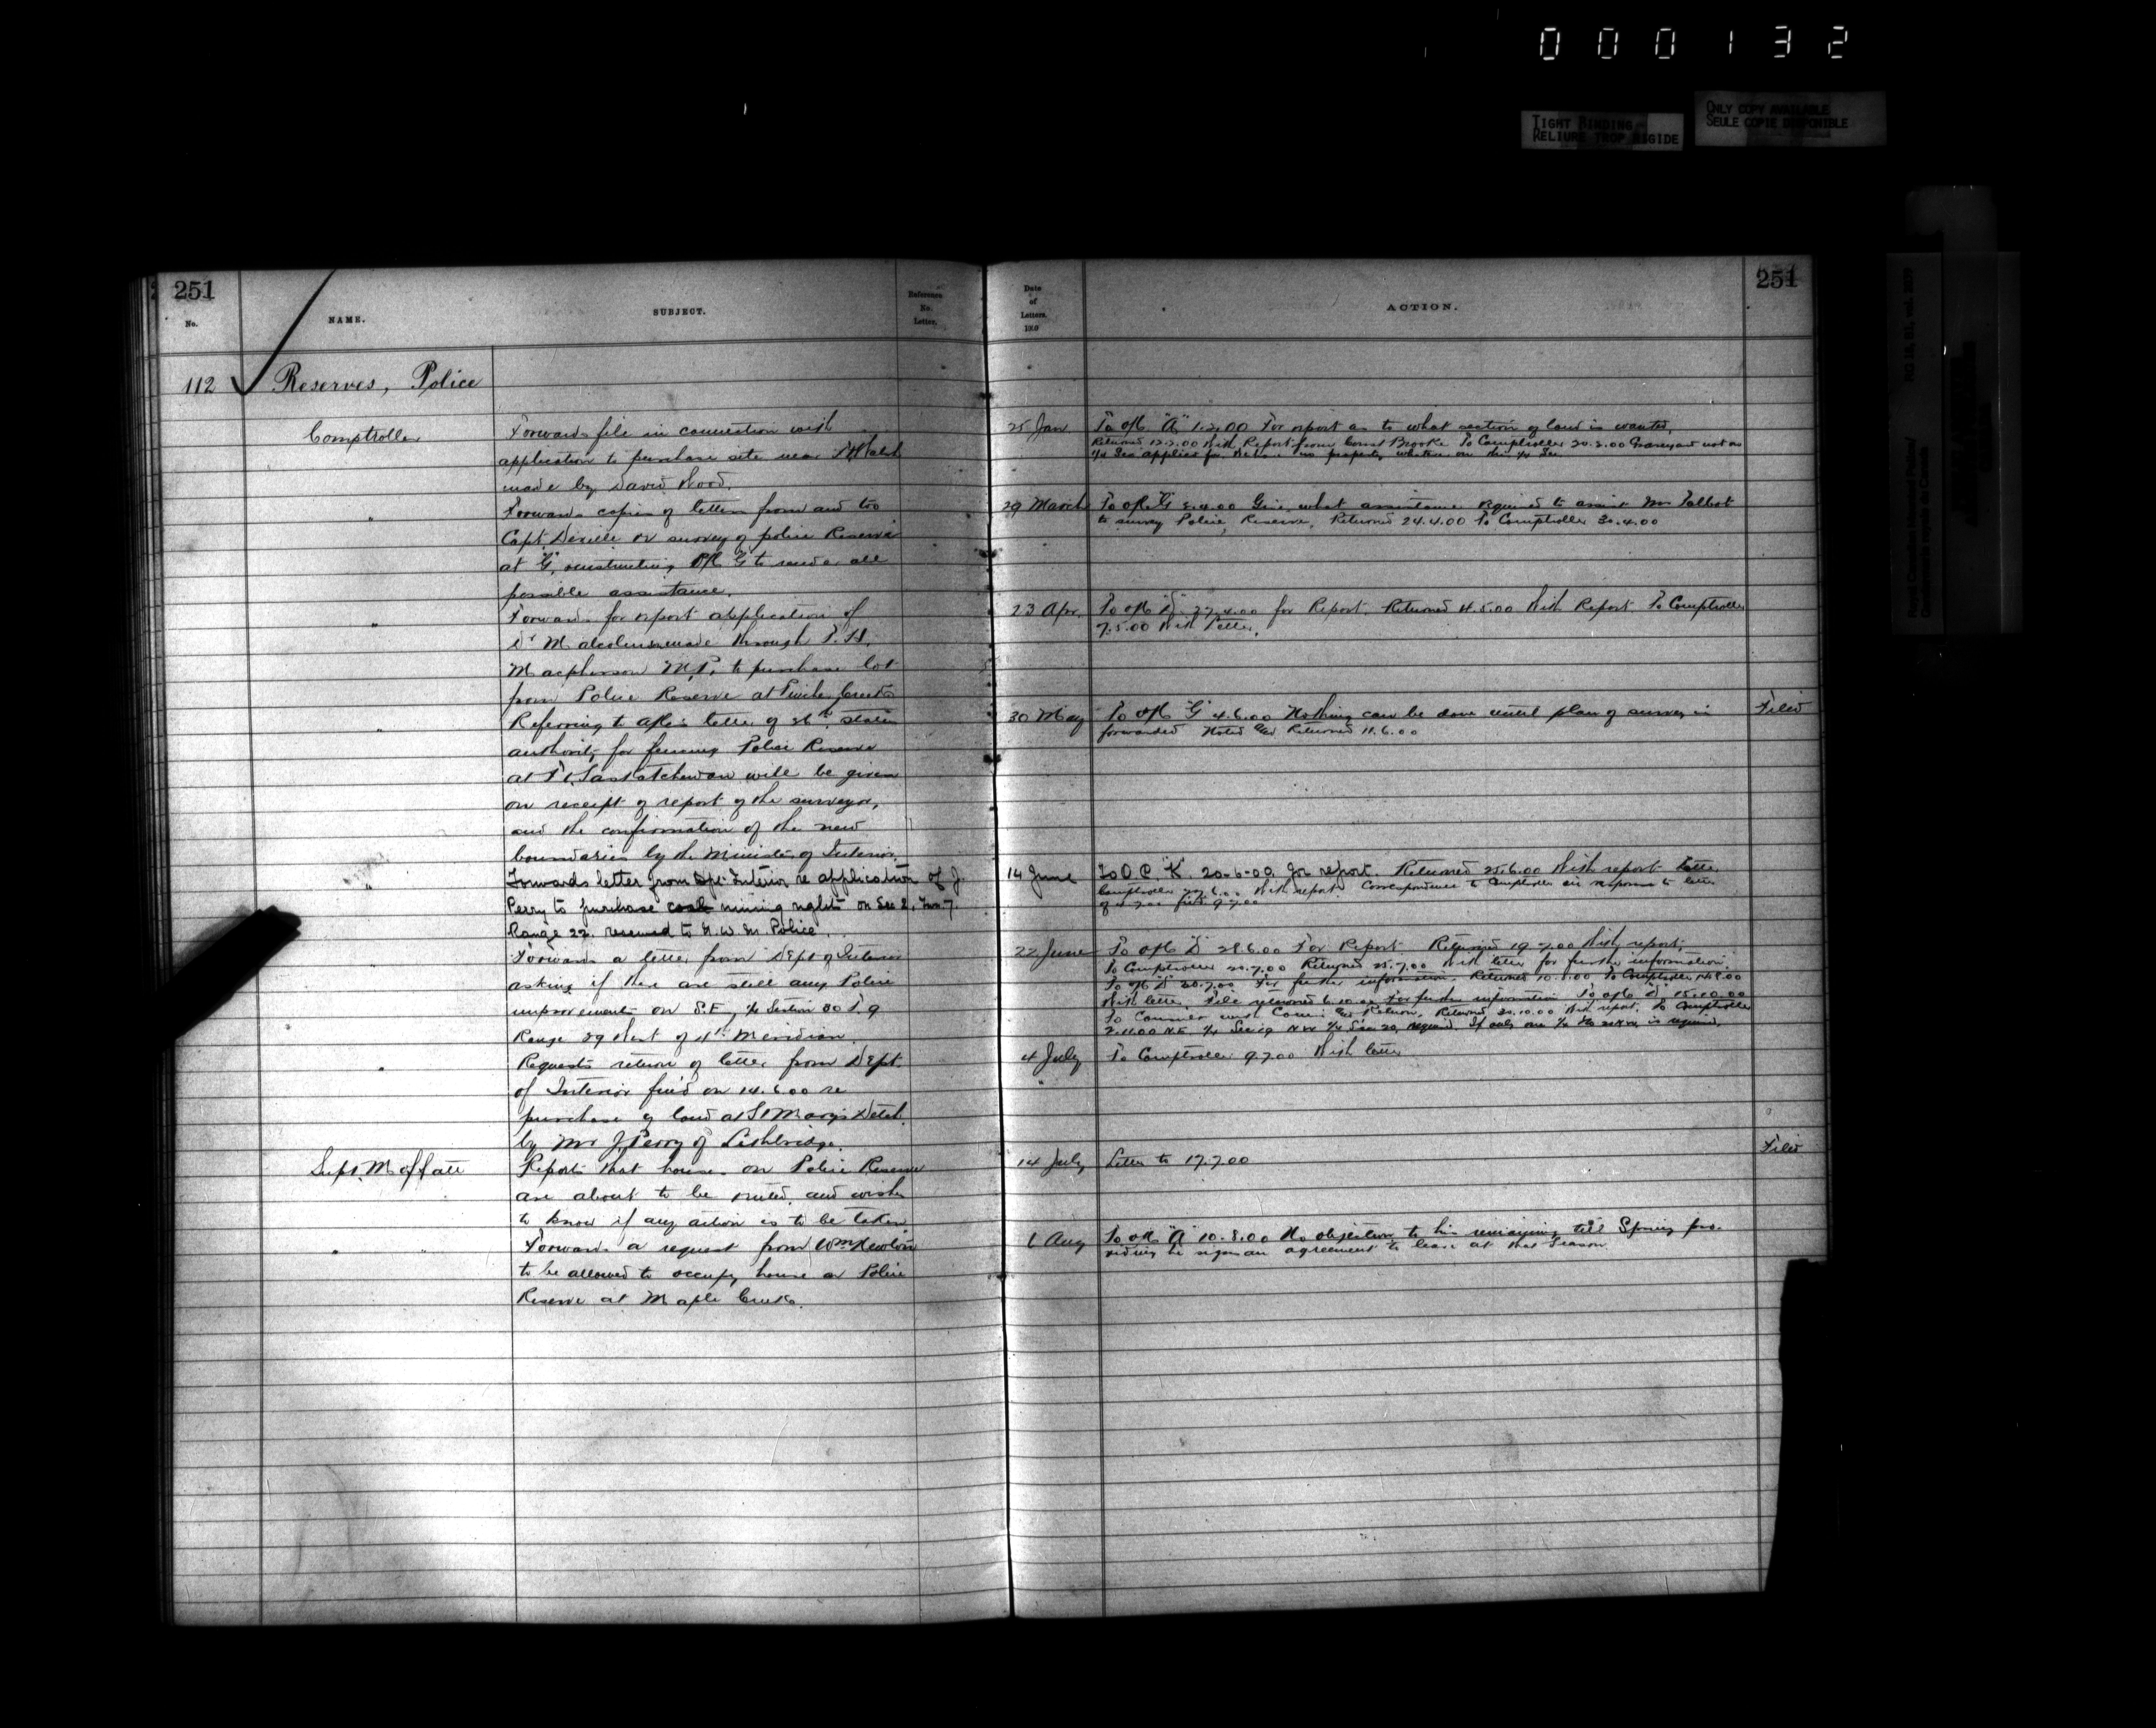 000132
TIGHT BINDING
RELIURE TROP RIGIDE
ONLY COPY AVAILABLE
SEULE COPIE DISPONIBLE
251
No.
NAME.
SUBJECT.
Reference
No.
Letter.
112 Reserves, Police
Comptroller
Forwards file in connection with
application to purchase site near Ft Walsh
made by David Wood.
" Forwards copies of letters from and to
Capt Deville re survey of police Reserve
at "G", instructing Offr "G" to render all
possible assistance.
" Forwards for report application of
Dr Malcolmson made through P. H.
Macpherson M.P. to purchase lot
from Police Reserve at Pincher Creek
" Referring to letter of states
authority for fencing Police Reserve
at Ft Saskatchewan will be given
on receipt of report of the surveyor,
and the confirmation of the new
boundaries by the Minister of Interior.
" Forwards letter from Dpt. Interior re application of J.
Perry to purchase coal mining rights on Sec 2, Twn. 7.
Range 22. reserved to N. W. M. Police.
" Forwards a letter from Dept of Interior
asking if there are still any Police
improvements on S.E. 1/4 Section 30 T. 9
Range 29 West of 4th Meridian.
" Requests return of letter from Dept.
of Interior fwd on 14.6.00 re
purchase of land at St Marys Detch.
by Mr J. Perry of Lethbridge.
Supt. Moffatt
Reports that houses on Police Reserve
are about to be rented, and wishes
to know if any action is to be taken.
" " Forwards a request from Wm Newton
to be allowed to occupy house on Police
Reserve at Maple Creek.
Date
of
Letters.
190
ACTION.
251
25 Jan To "A" 1.2.00 For report as to what section of land is wanted,
Returned 12.2.00 With Report from Const Brooke To Comptroller 20.2.00 Graveyard not on
1/4 Sec applied for no property whatever on this 1/4 Sec
29 March To "G" 5.4.00 Give what assistance required to assist Mr Talbot
to survey Police Reserve, Returned 24.4.00 To Comptroller 30.4.00
23 Apr. To "D" 27.4.00 for Report. Returned 4.5.00 With Report To Comptroller
7.5.00 With Letter.
30 May To "G" 4.6.00 Nothing can be done until plan of survey is Filed
forwarded Noted Returned 11.6.00
14 June To O.C. "K" 20-6-00 for report. Returned 25.6.00 With report letter
Comptroller With report Correspondence to Comptroller in response to letter
of
22 June To "D" 28.6.00 For Report Returned 19.7.00 With report,
To Comptroller 20.7.00 Returned 25.7.00 With letter for further information.
To "D" 28.7.00 For further information Returned 10.8.00 To Comptroller 14.8.00
With letter. File returned 6.10.00 For further information To "D" 15.10.00
To Return, Returned 30.10.00 With report. To Comptroller
2.11.00 N.E. 1/4 Sec 19 N.W. 1/4 Sec 20, required. If only one 1/4 is required.
4 July To Comptroller 9.7.00 With letter
14 July Letter to 17.7.00 Filed
6 Aug To "A" 10.8.00 No objection to his remaining till Spring pro-
viding he signs an agreement to leave at that Season